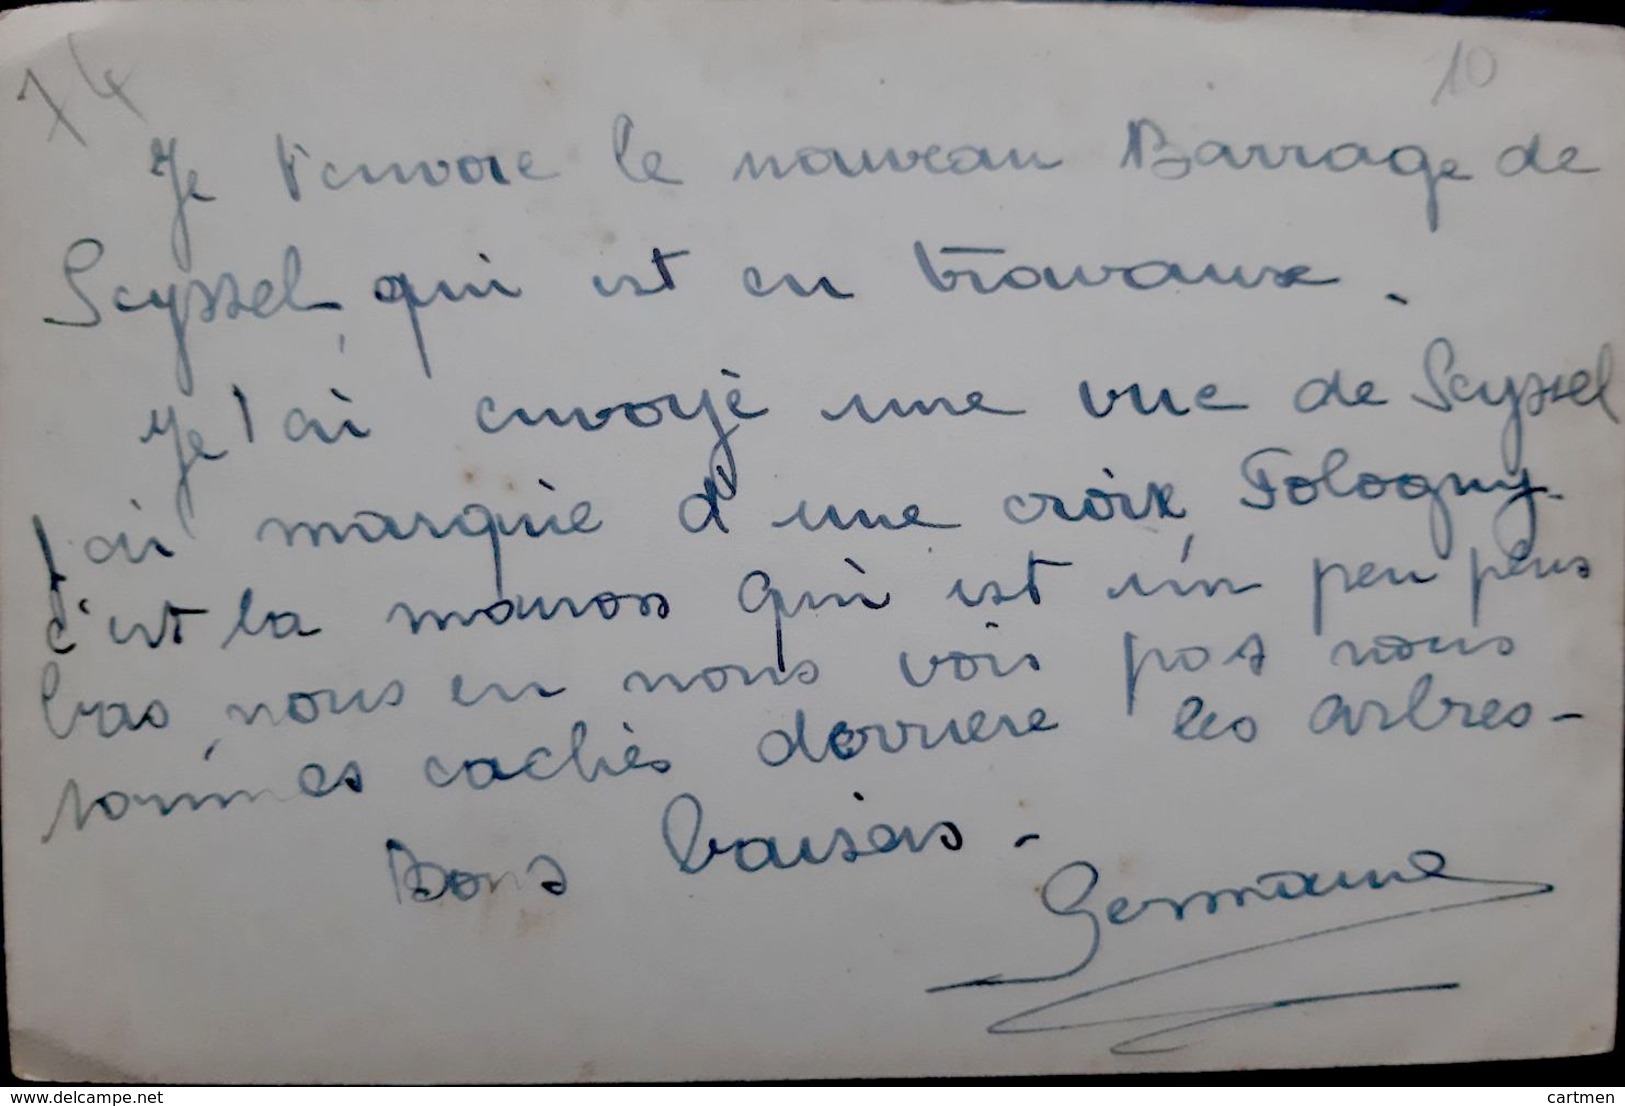 74
10
Je t'envoie le nouveau Barrage de
Seyssel, qui est en travaux.
Je t'ai envoyé une vue de Seyssel
j'ai marquée d'une croix, Fologny-
c'est la maison qui est un peu plus
bas, nous en nous vois pas nous
sommes cachès derriere les arbres-
Bons baisers-
Germaine
www.delcampe.net
cartmen